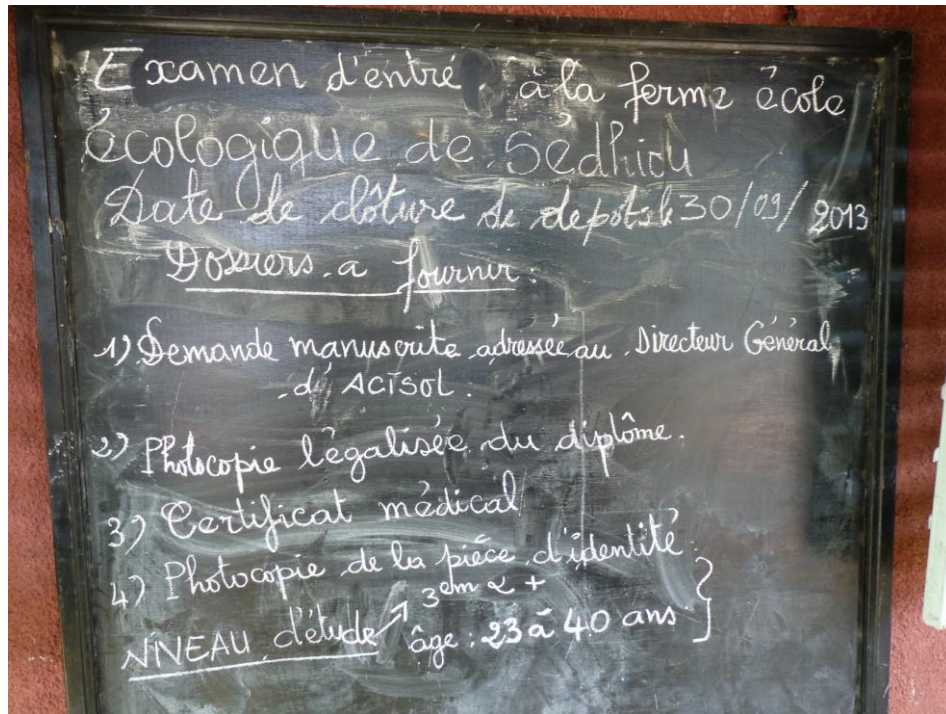 Examen d'entré à la ferme école
écologique de Sédhiou
Date de clôture de depots le 30/09/2013
Dossiers a fournir:
1) Demande manuscrite adressée au Directeur Général
d'ACTSOL.
2) Photocopie légalisée du diplôme.
3) Certificat médical
4) Photocopie de la pièce d'identité
3em et +
NIVEAU d'étude
âge : 23 à 40 ans